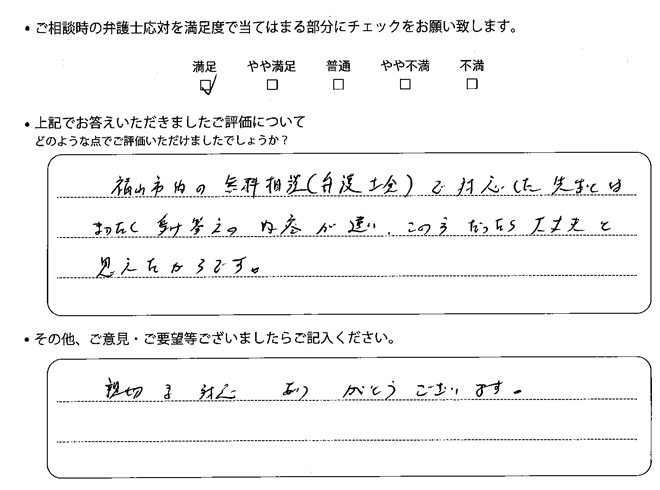 ・ご相談時の弁護士応対を満足度で当てはまる部分にチェックをお願い致します。
満足 やや満足 普通 やや不満 不満
・上記でお答えいただきましたご評価について
どのような点でご評価いただけましたでしょうか？
福山市内の無料相談(弁護士会)で対応した先生とは
まったく受け答えの内容が違い、この方だったら大丈夫と
思えたからです。
・その他、ご意見・ご要望等ございましたらご記入ください。
親切な対応 ありがとうございます。